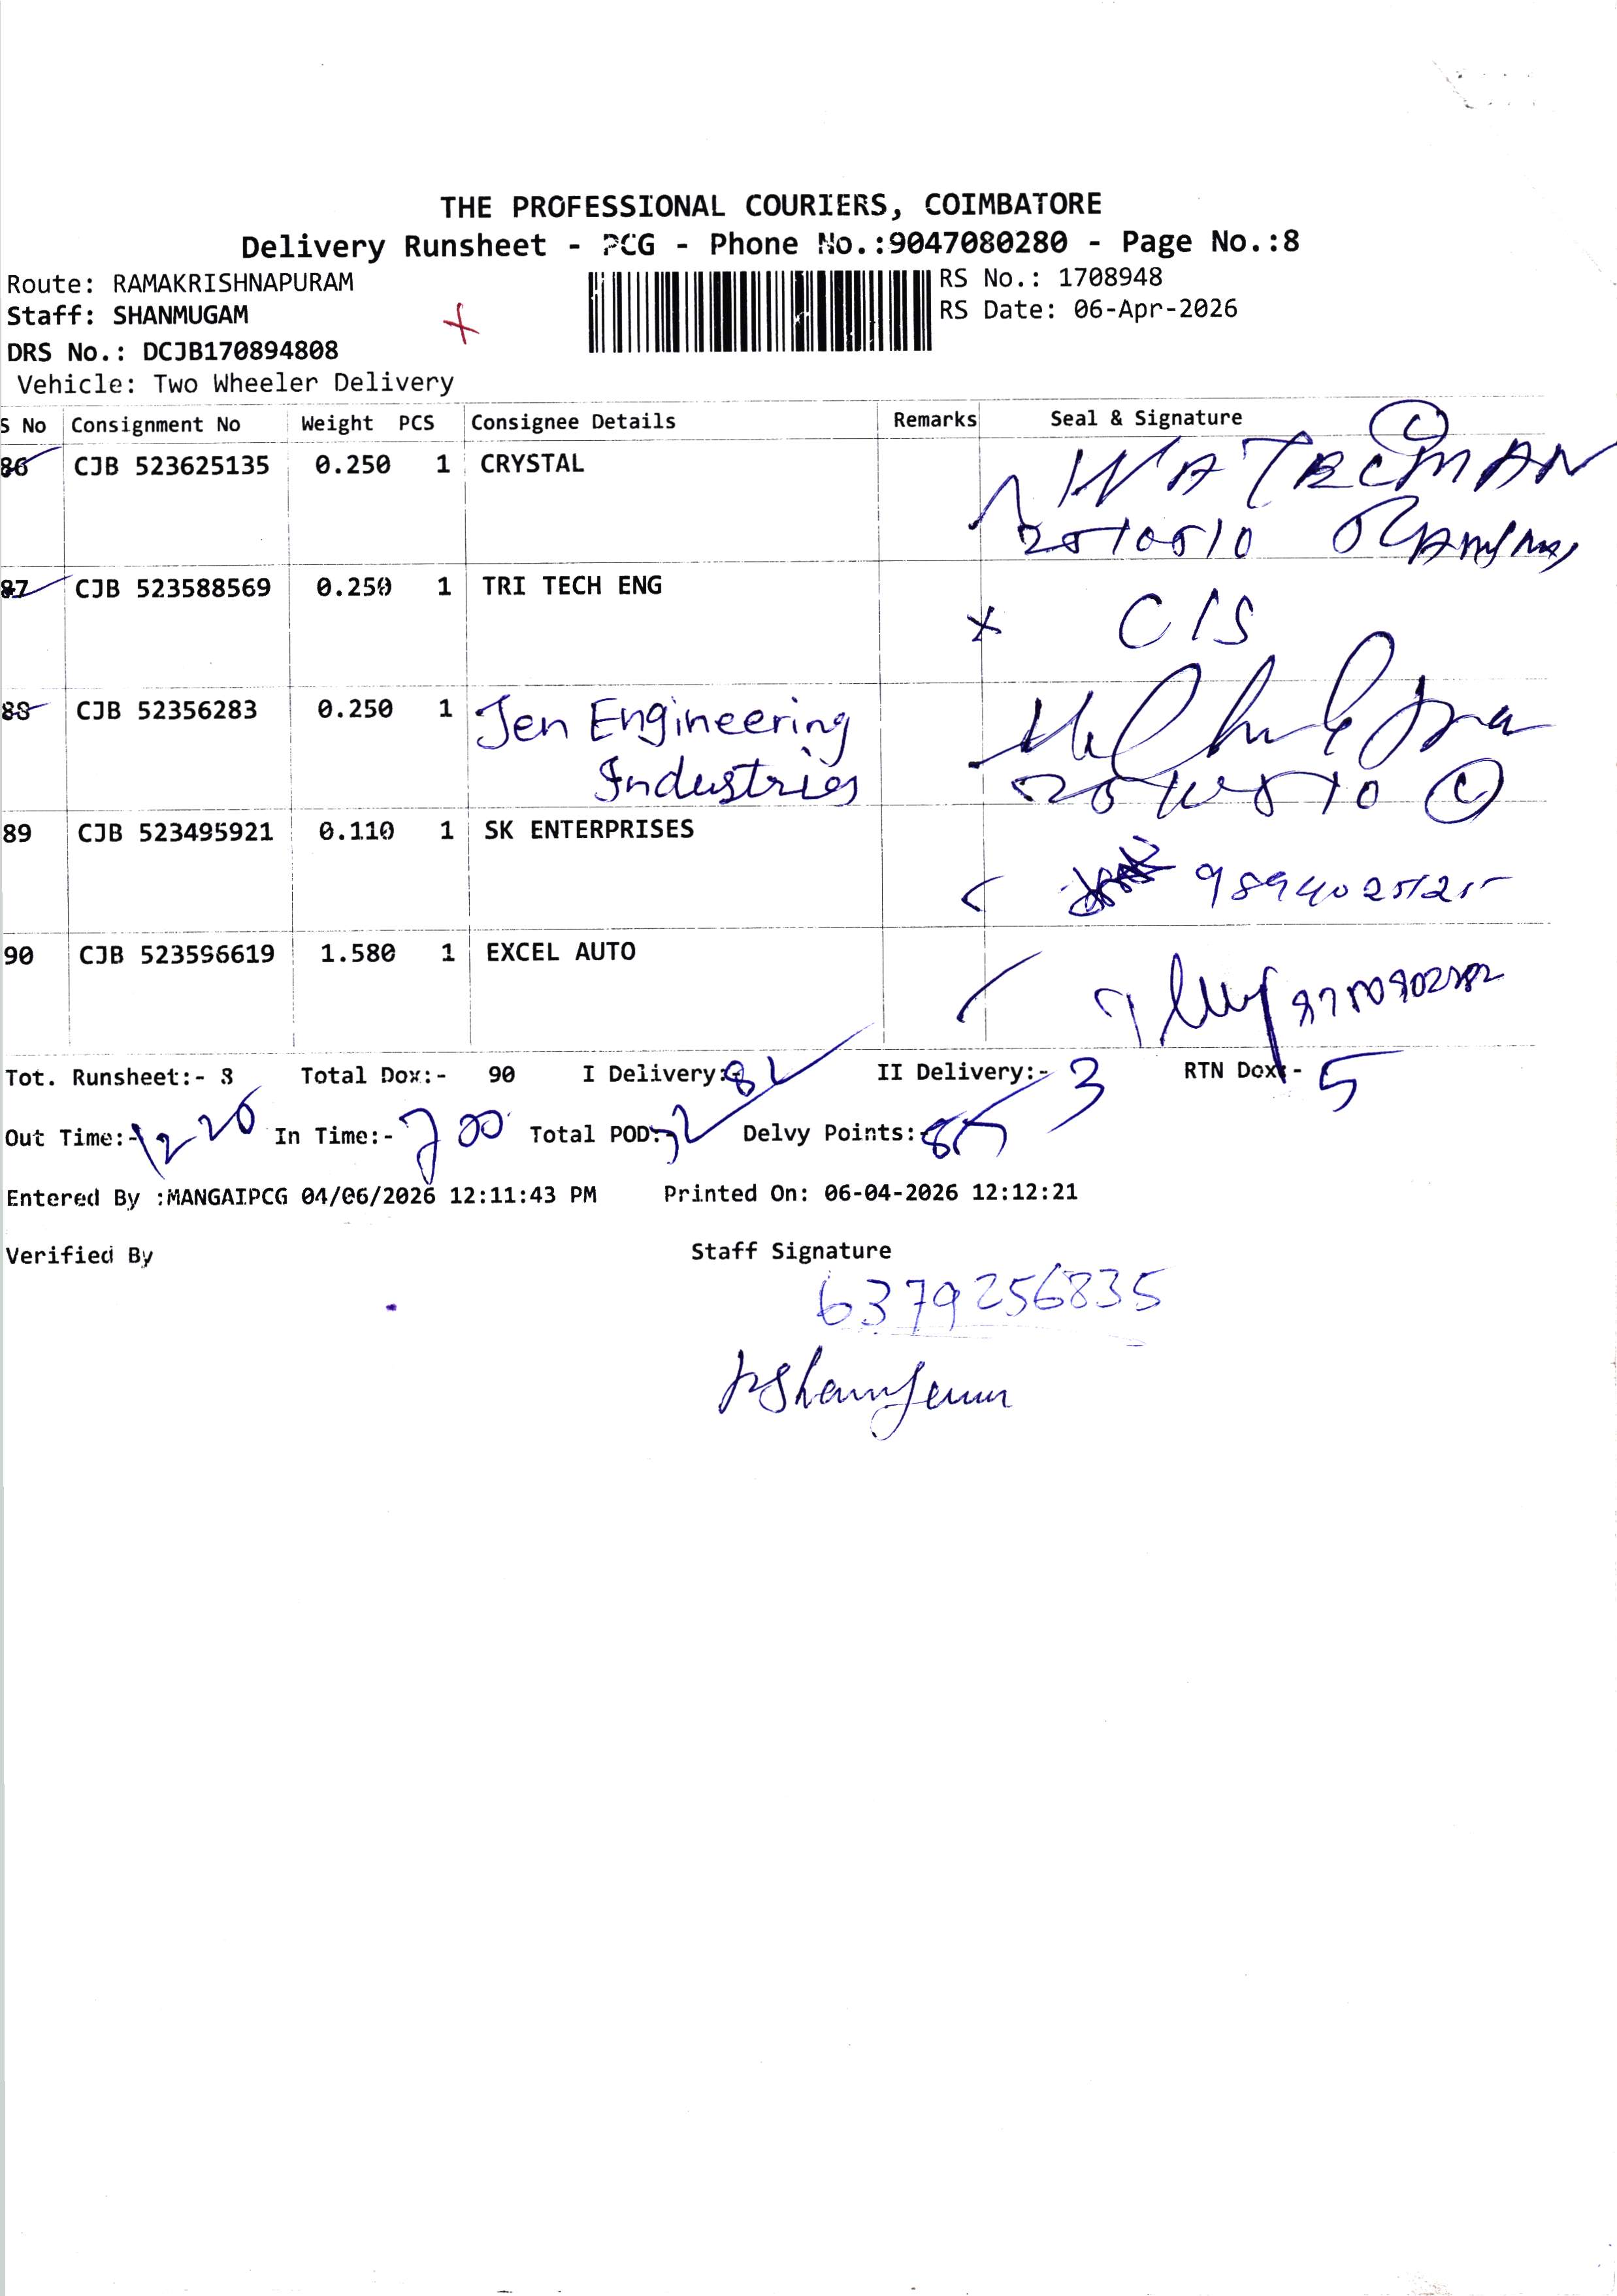 THE PROFESSIONAL COURIERS, COIMBATORE
Delivery Runsheet - PCG - Phone No.:9047080280 - Page No.:8
Route: RAMAKRISHNAPURAM
RS No.: 1708948
Staff: SHANMUGAM
RS Date: 06-Apr-2026
DRS No.: DCJB170894808
Vehicle: Two Wheeler Delivery
S No Consignment No Weight PCS Consignee Details Remarks Seal & Signature
86 CJB 523625135 0.250 1 CRYSTAL WATREMAN
2510510
87 CJB 523588569 0.250 1 TRI TECH ENG
C/S
88 CJB 52356283 0.250 1 Jen Engineering
Industries
89 CJB 523495921 0.110 1 SK ENTERPRISES
90 CJB 523596619 1.580 1 EXCEL AUTO
Tot. Runsheet:- 8 Total Dox:- 90 I Delivery:- 82 II Delivery:- 3 RTN Dox:- 5
Out Time:- 12 20 In Time:- 700 Total POD:- Delvy Points:- 85
Entered By :MANGAIPCG 04/06/2026 12:11:43 PM Printed On: 06-04-2026 12:12:21
Verified By Staff Signature
6379256835